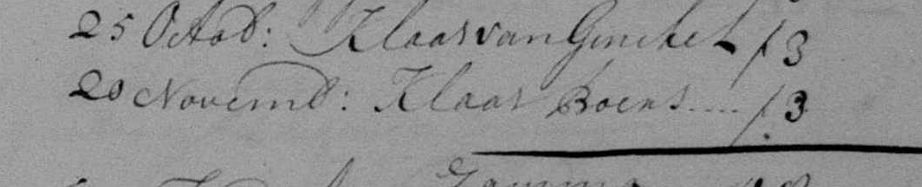 25 Octob: Klaas van Ginckel f 3
20 Novemb: Klaas Boens .... f 3